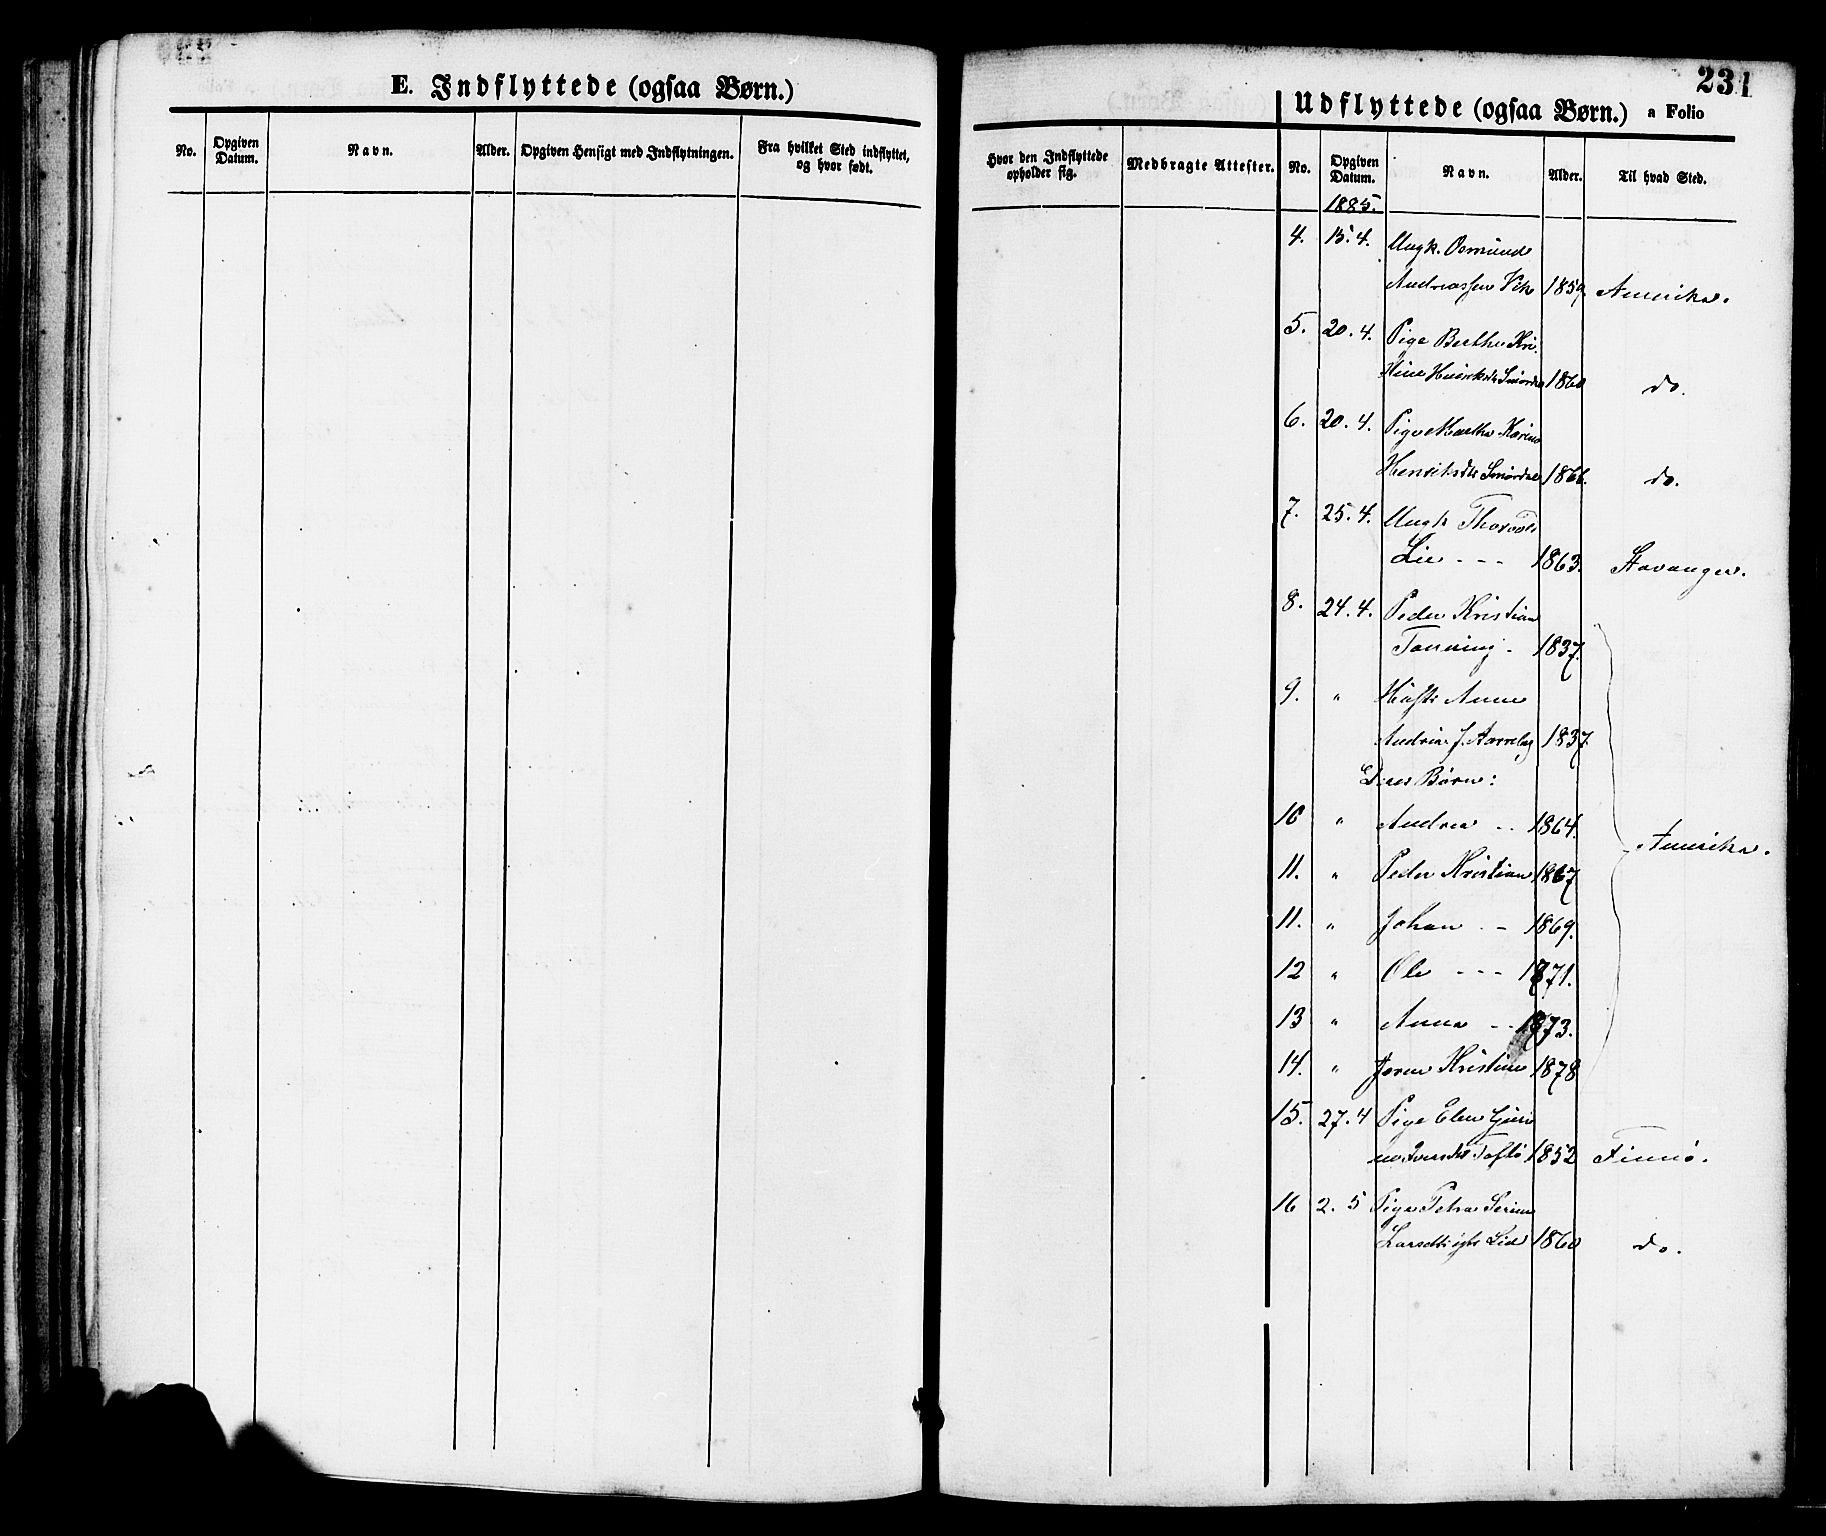 E. Indflyttede (ogsaa Børn.)
No. Opgiven Datum. Navn. Alder. Opgiven Hensigt med Indflytningen. Fra hvilket Sted indflyttet, og hvor født.
231
Udflyttede (ogsaa Børn.) a Folio
Hvor den Indflyttede opholder sig. Medbragte Attester. No. Opgiven Datum. Navn. Alder. Til hvad Sted.
1885.
4. 15.4. Ungk. Osmund
Andreassen Vik 1859. Amerika.
5. 20.4. Pige Berthe Kri-
stine Henriksdtr Smørdal 1860 do.
6. 20.4. Pige Marthe Karine
Henriksdtr Smørdal 1866. do.
7. 25.4. Ungk Thorvald
Lie - - - 1863. Stavanger.
8. 24.4. Peder Kristian
Tonning - 1837.
9. " Hustr Anne
Andrea J. 1837.
Deres Børn:
10 " Andrea - - 1864. Amerika.
11. " Peder Kristian 1867
11. " Johan - - 1869.
12 " Ole - - - 1871.
13 " Anna - - 1873.
14. " Kristine 1878
15. 27.4 Pige Elen
1852 Finnø.
16 2.5 Pige Petra Serine
Larsdtr Lid 1860 do.